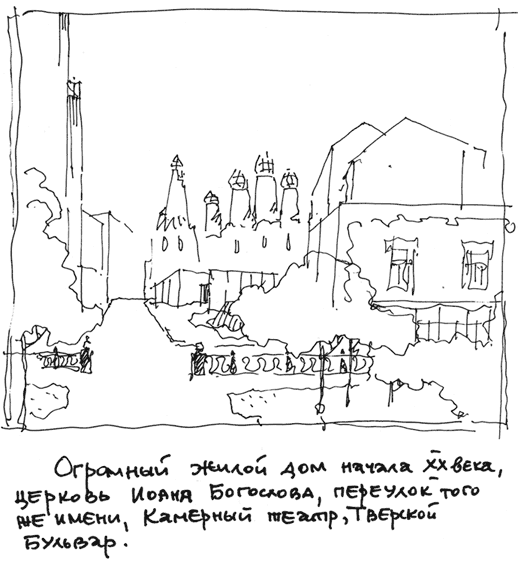 Огромный жилой дом начала XX века,
церковь Иоана Богослова, переулок того
же имени, Камерный театр, Тверской
Бульвар.